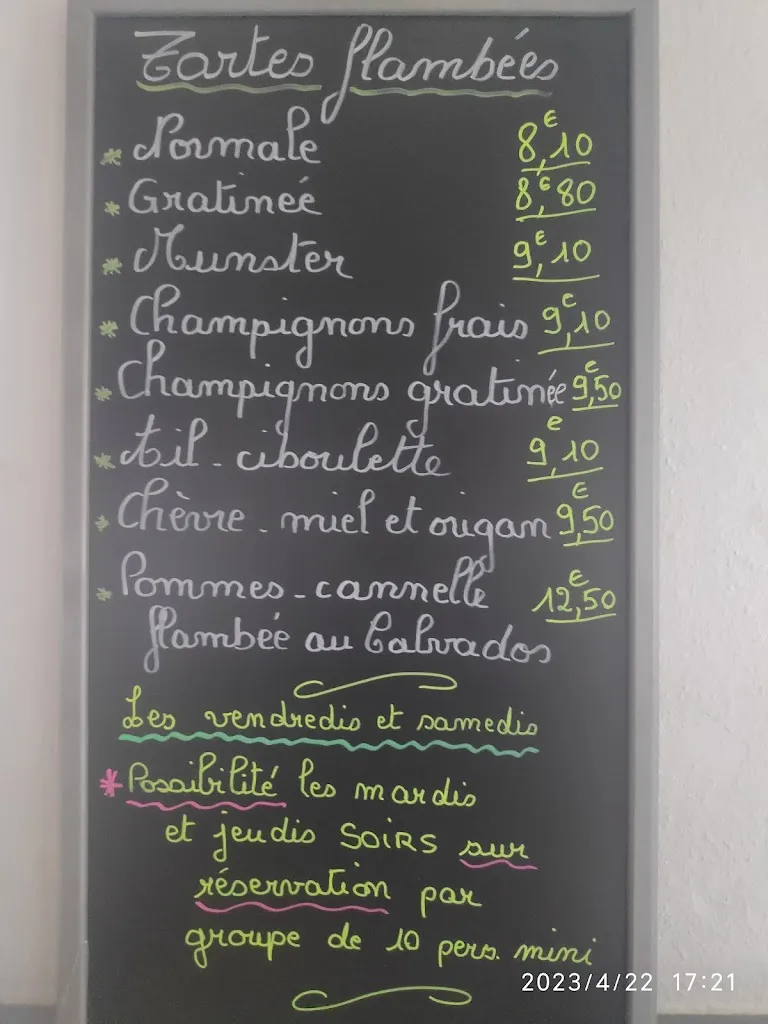 Tartes flambées
* Normale 8,€10
* Gratinée 8,€80
* Munster 9,€10
* Champignons frais 9,€10
* Champignons gratinée 9,€50
* Ail - ciboulette 9,€10
* Chèvre - miel et origan 9,€50
* Pommes - cannelle 12,€50
flambée au Calvados
Les vendredis et samedis
* Possibilité les mardis
et jeudis SOIRS sur
réservation par
groupe de 10 pers. mini
2023/4/22 17:21